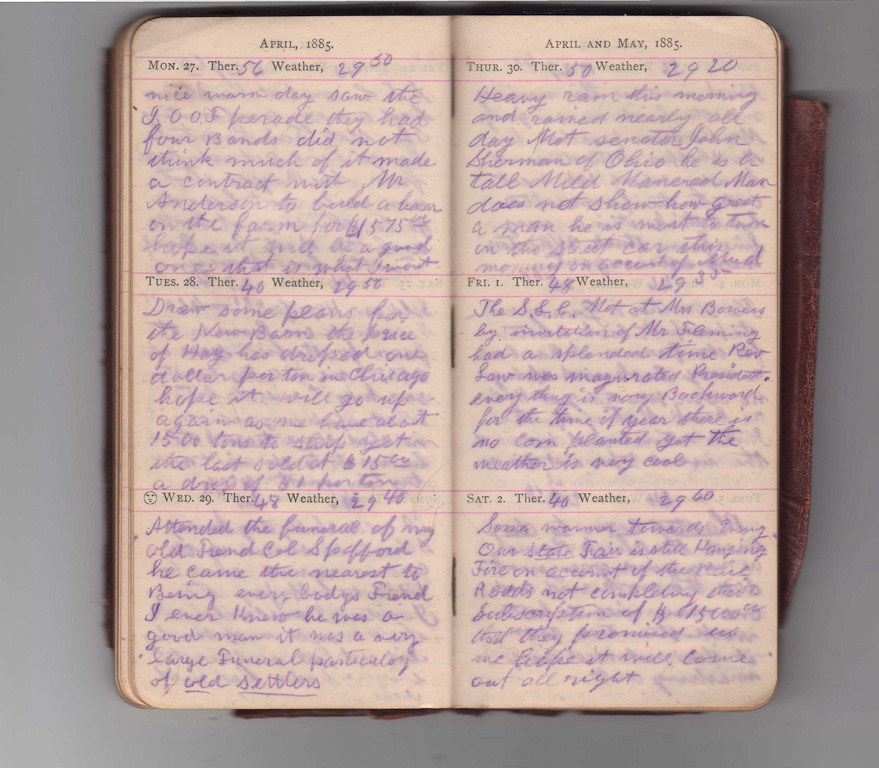 APRIL, 1885.
MON. 27. Ther. 56 Weather, 29 50
nice warm day saw the
I.O.O.F parade they had
four Bands did not
think much of it made
a contract with Mr
Anderson to build a barn
on the farm for $1575 00
hope it will be a good
one that is what I want
TUES. 28. Ther. 40 Weather, 29 50
Drew some plans for
the New Barn the price
of Hay has droped one
dollar per ton in Chicago
hope it will go up
again as we have about
1500 tons to ship yet
the last sold at $15 00
a drop of $1 per ton
WED. 29. Ther. 48 Weather, 29 40
Attended the funeral of my
old Frend Col Spofford
he came the nearest to
Being every bodys Frend
I ever Knew he was a
good man it was a very
large Funeral particuloy
of old Settlers
APRIL AND MAY, 1885.
THUR. 30. Ther. 50 Weather, 29 20
Heavy rain this morning
and rained nearly all
day Met senator John
Sherman of Ohio he is a
tall Mild Manered Man
does not show how great
a man he is went to town
on the street car this
morning on account of Mud
FRI. 1. Ther. 48 Weather, 29 35
The S.S.C. Met at Mrs Bowers
by invitation of Mr Fleming
had a splended time Rev
Law was inagurated President.
every thing is very Backward
for the time of year there is
no corn planted yet the
weather is very cool
SAT. 2. Ther. 40 Weather, 29 60
Some warmer towards Eving
Our State Fair is still Hanging
Fire on account of the Rail
Roads not completing their
Subscription of $15000 00
that they promised us
we hope it will Come
out all right